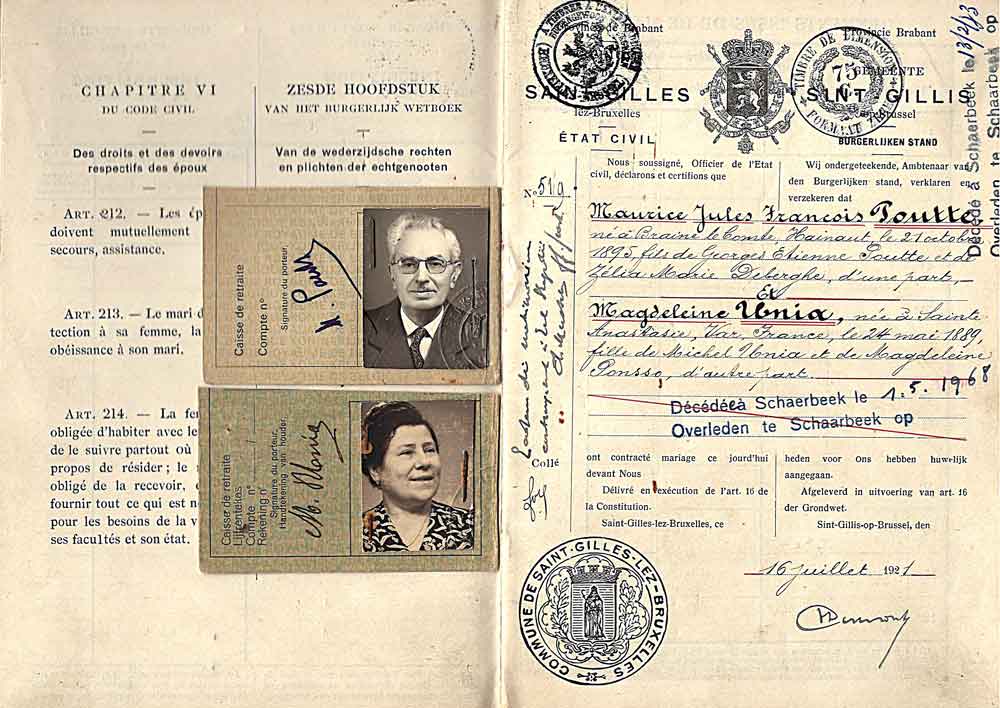 CHAPITRE VI
DU CODE CIVIL
Des droits et des devoirs
respectifs des époux
ART. 212. — Les ép
doivent mutuellement
secours, assistance.
ART. 213. — Le mari d
tection à sa femme, la
obéissance à son mari.
ART. 214. — La fem
obligée d'habiter avec le
de le suivre partout où
propos de résider ; le
obligé de la recevoir,
fournir tout ce qui est n
pour les besoins de la v
ses facultés et son état.
ZESDE HOOFDSTUK
VAN HET BURGERLIJK WETBOEK
Van de wederzijdsche rechten
en plichten der echtgenooten
Caisse de retraite
Compte n°
Signature du porteur.
Caisse de retraite
Lijfrentekas
Compte n°
Rekening n°
Signature du porteur.
Handtekening van houder.
M. Unia
Province de Brabant
SAINT-GILLES
lez-Bruxelles
ÉTAT CIVIL
Provincie Brabant
GEMEENTE
SINT-GILLIS
op-Brussel
BURGERLIJKEN STAND
TIMBRE DE DIMENSION
75
Décédé à Schaerbeek le 13/2/73
Overleden te Schaarbeek op
Nous soussigné, Officier de l'Etat
civil, déclarons et certifions que
Wij ondergeteekende, Ambtenaar van
den Burgerlijken stand, verklaren en
verzekeren dat
N° 519
Maurice Jules François Poutte
né à Braine le Comte, Hainaut le 21 octobre
1895, fils de Georges Etienne Poutte et de
Zélia Marie Deberghe, d'une part,
Et
Magdeleine Unia, née à Sainte
Anastasie, Var, France, le 24 mai 1889,
fille de Michel Unia et de Magdeleine
Ponsso, d'autre part.
Décédée à Schaerbeek le 1.5.1968
Overleden te Schaarbeek op
Collé
ont contracté mariage ce jourd'hui
devant Nous
Délivré en exécution de l'art. 16 de
la Constitution.
Saint-Gilles-lez-Bruxelles, ce
heden voor Ons hebben huwelijk
aangegaan.
Afgeleverd in uitvoering van art. 16
der Grondwet.
Sint-Gillis-op-Brussel, den
16 juillet 1921
COMMUNE DE SAINT-GILLES-LEZ-BRUXELLES